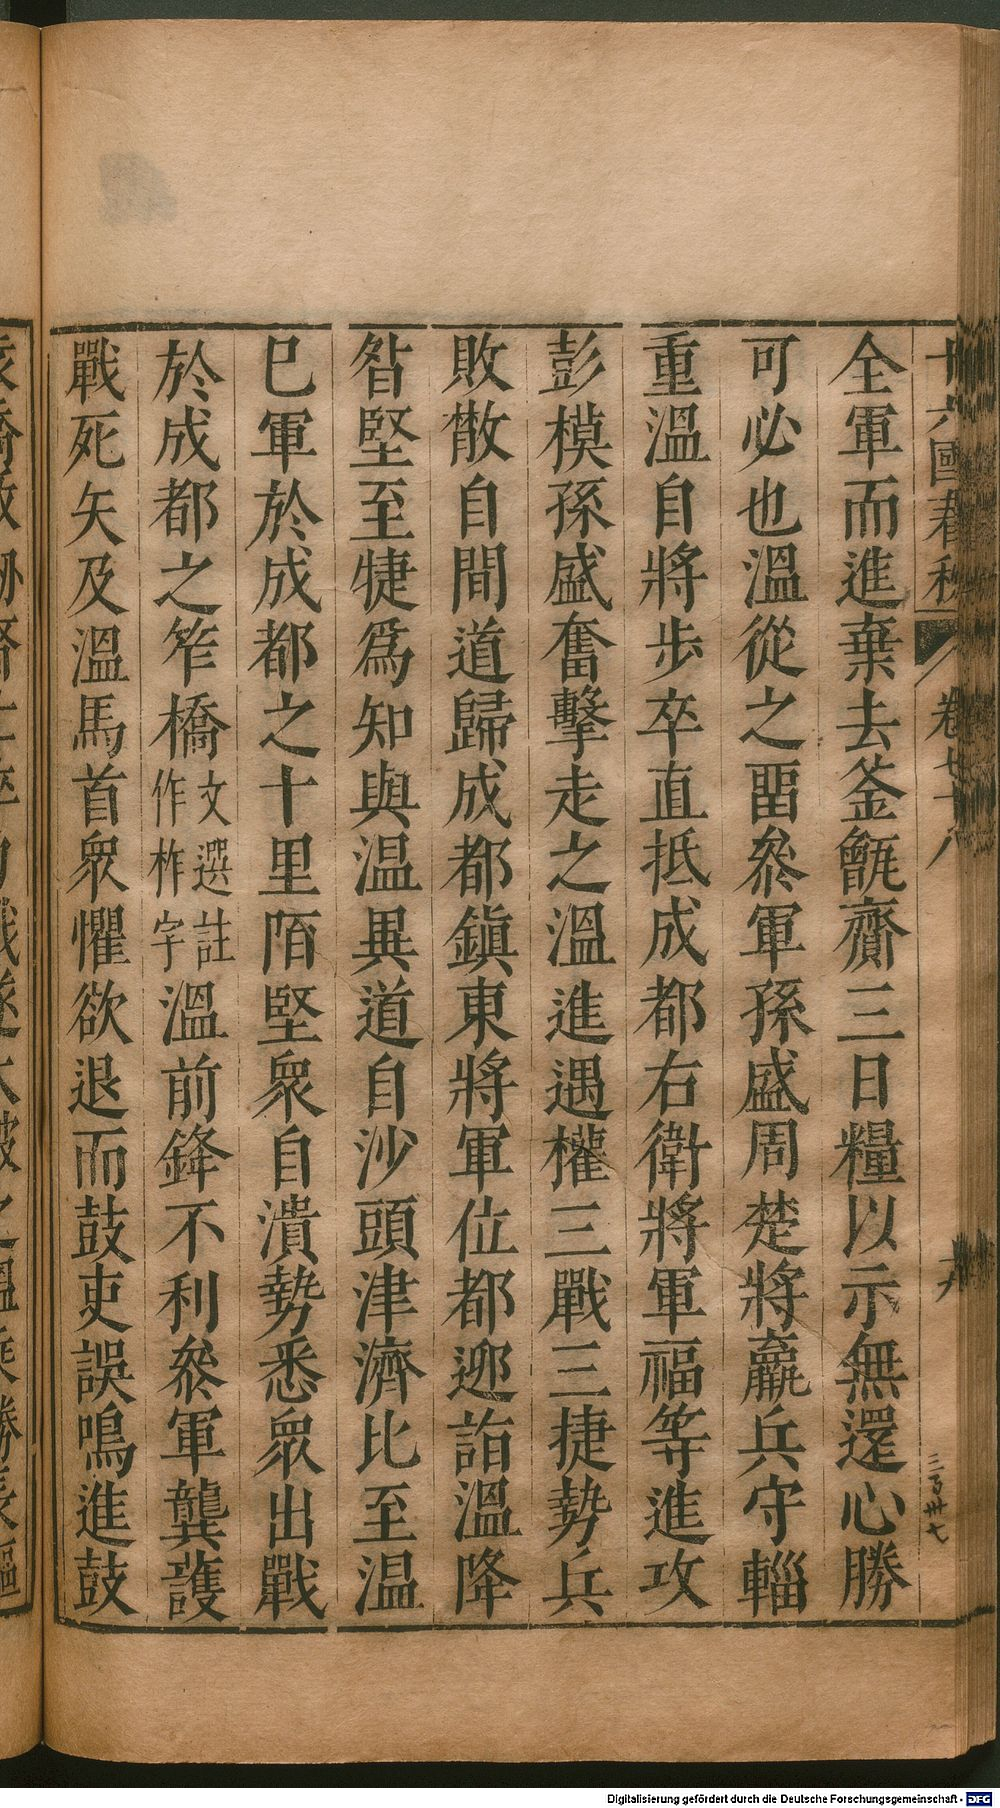 十六國春秋 卷七十八
全軍而進棄去釜甑齎三日糧以示無還心勝
可必也溫從之畱叅軍孫盛周楚將羸兵守輜
重溫自將步卒直抵成都右衛將軍福等進攻
彭模孫盛奮擊走之溫進遇權三戰三捷勢兵
敗散自間道歸成都鎮東將軍位都迎詣溫降
昝堅至犍爲知與溫異道自沙頭津濟比至溫
巳軍於成都之十里陌堅衆自潰勢悉衆出戰
於成都之笮橋文選註作柞字溫前鋒不利叅軍龔護
戰死矢及溫馬首衆懼欲退而鼓吏誤鳴進鼓
三百卅七
Digitalisierung gefördert durch die Deutsche Forschungsgemeinschaft - DFG